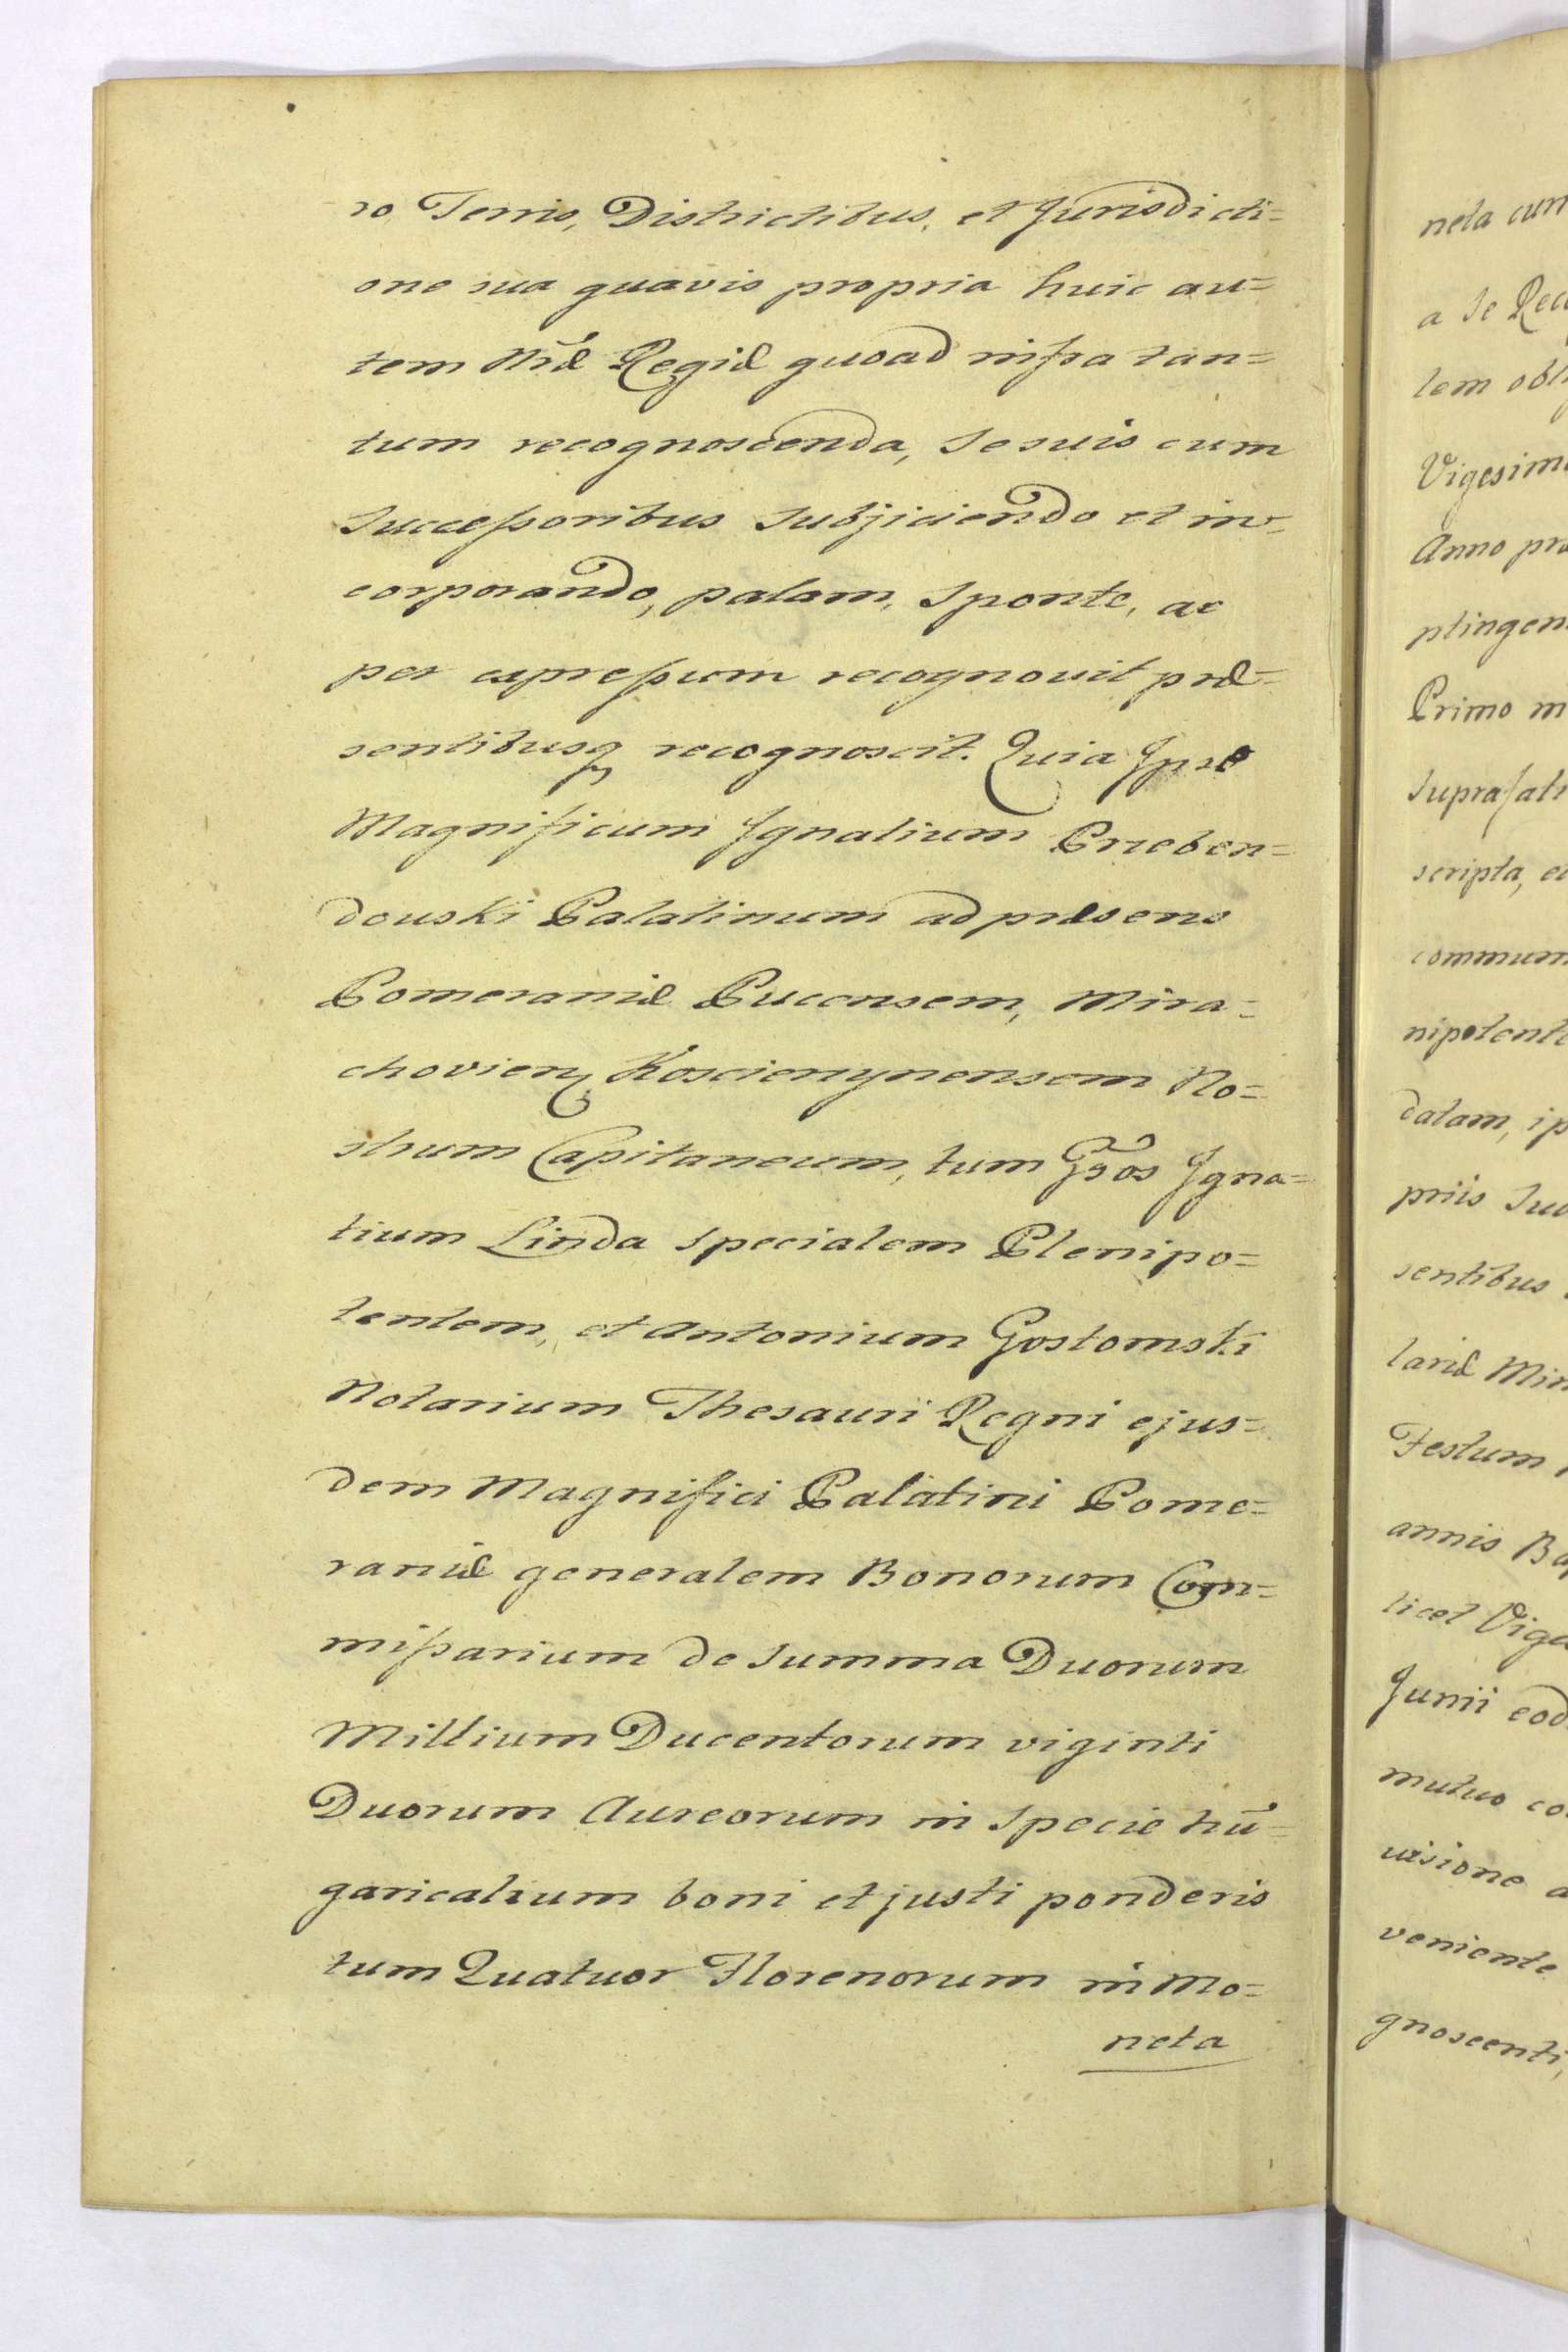 ro Terris, Districtibus, et Jurisdicti=
one sua quavis propria huic au=
tem Nræ Regiæ quoad infra tan=
tum recognoscenda, se suis cum
Successoribus subjiciendo et in=
corporando, palam, sponte, ac
per expressum recognovit præ=
sentibusq recognoscit. Quia Ipse
Magnificum Ignatium Przeben=
douski Palatinum ad præsens
Pomeraniæ Pucensem, Mira=
chovien, Koscierzynensem No=
strum Capitaneum, tum Gsos Igna=
tium Linda specialem Plenipo=
tentem, et Antonium Gostomski
Notarium Thesauri Regni ejus=
dem Magnifici Palatini Pome=
raniæ generalem Bonorum Com=
missarium de summa Duorum
Millium Ducentorum viginti
Duorum Aureorum in specie hũ=
garicalium boni et justi ponderis
tum Quatuor Florenorum in Mo=
neta
neta cum
a se Rec
tem obl
Vigesim
Anno pr
ptingen
Primo m
suprafat
scripta, e
commun
nipotent
datam, ip
priis Su
sentibus
lariæ Min
Festum
annis Ba
licet Vig
Junii eod
mutuo co
visione a
veniente
gnoscenti,